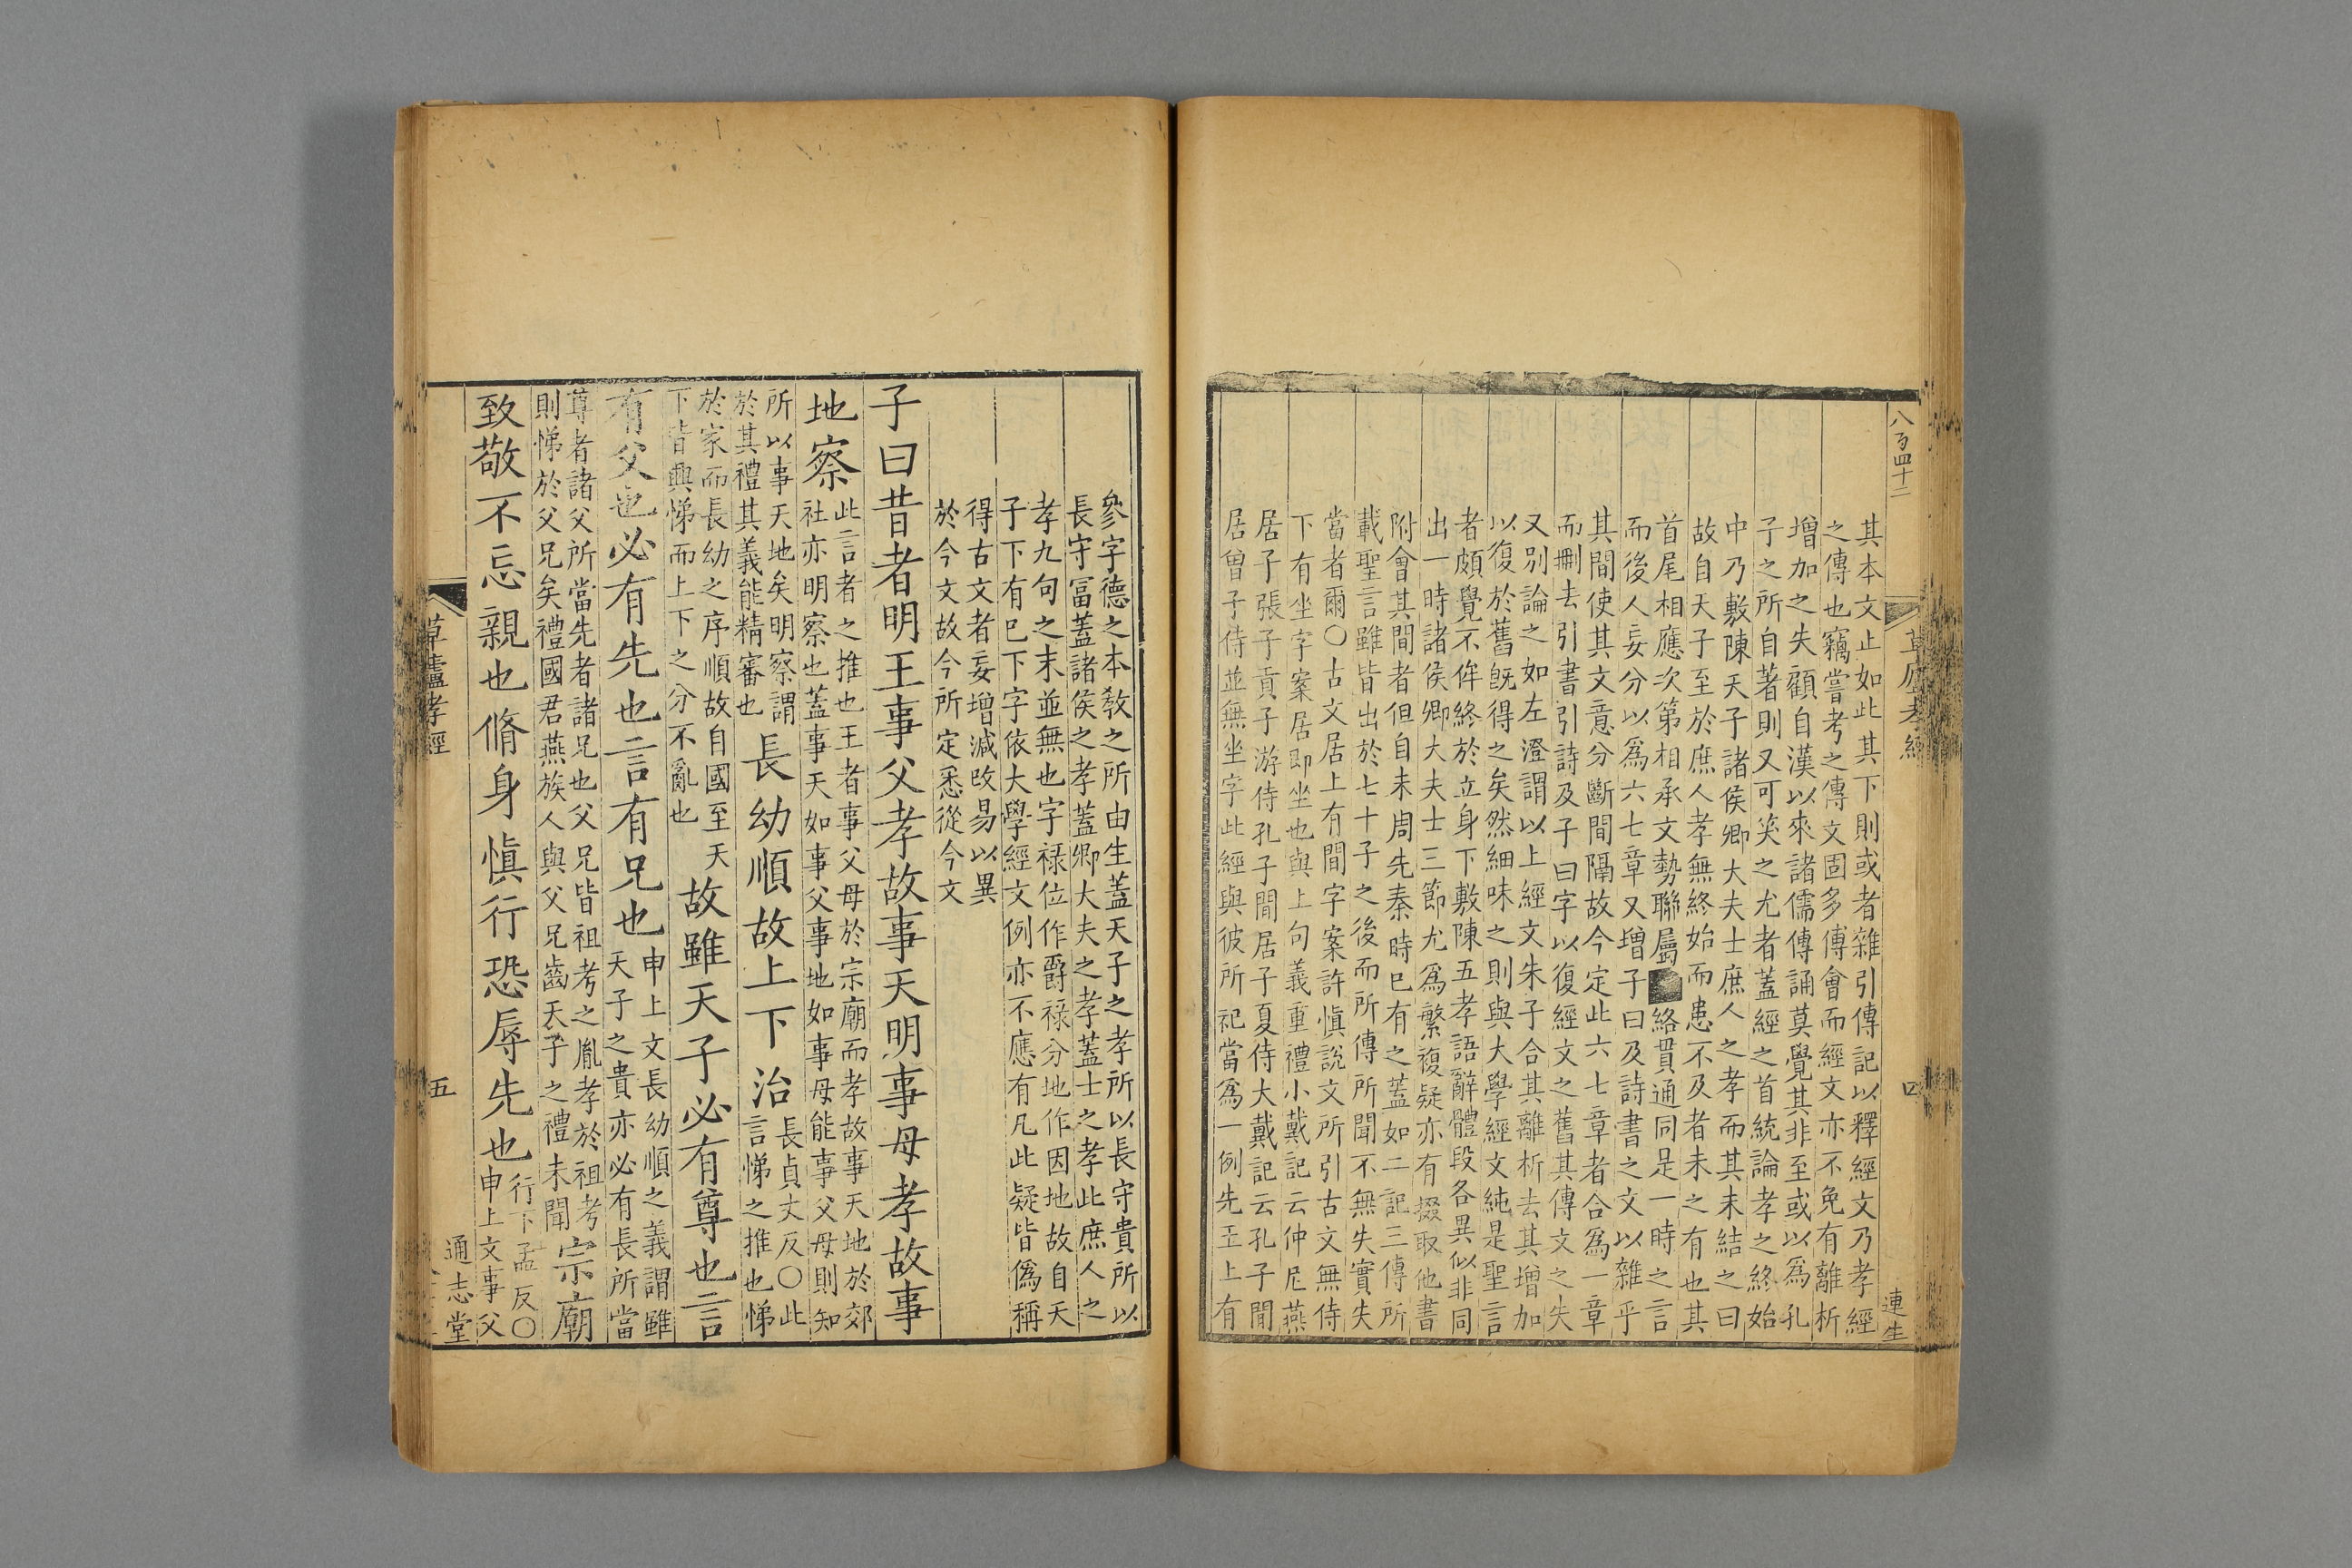 八百四十二
草廬孝經
四
連生
其本文止如此其下則或者雜引傳記以釋經文乃孝經
之傳也竊嘗考之傳文固多傅會而經文亦不免有離析
增加之失顧自漢以來諸儒傳誦莫覺其非至或以爲孔
子之所自著則又可笑之尤者蓋經之首統論孝之終始
中乃敷陳天子諸侯卿大夫士庶人之孝而其末結之曰
故自天子至於庶人孝無終始而患不及者未之有也其
首尾相應次第相承文勢聯屬絡貫通同是一時之言
而後人妄分以爲六七章又增子曰及詩書之文以雜乎
其間使其文意分斷間隔故今定此六七章者合爲一章
而刪去引書引詩及子曰字以復經文之舊其傳文之失
又別論之如左澄謂以上經文朱子合其離析去其增加
以復於舊旣得之矣然細味之則與大學經文純是聖言
者頗覺不侔終於立身下敷陳五孝語辭體段各異似非同
出一時諸侯卿大夫士三節尤爲繁複疑亦有掇取他書
附會其間者但自未周先秦時已有之蓋如二記三傳所
載聖言雖皆出於七十子之後而所傳所聞不無失實失
當者爾〇古文居上有閒字案許愼說文所引古文無侍
下有坐字案居即坐也與上句義重禮小戴記云仲尼燕
居子張子貢子游侍孔子閒居子夏侍大戴記云孔子閒
居曾子侍並無坐字此經與彼所記當爲一例先王上有
參字德之本敎之所由生蓋天子之孝所以長守貴所以
長守富蓋諸侯之孝蓋卿大夫之孝蓋士之孝此庶人之
孝九句之末並無也字禄位作爵祿分地作因地故自天
子下有已下字依大學經文例亦不應有凡此疑皆僞稱
得古文者妄增減改易以異
於今文故今所定悉從今文
子曰昔者明王事父孝故事天明事母孝故事
地察
此言者之推也王者事父母於宗廟而孝故事天地於郊
社亦明察也蓋事天如事父事地如事母能事父母則知
所以事天地矣明察謂
於其禮其義能精審也
長幼順故上下治
長貞丈反〇此
言悌之推也悌
於家而長幼之序順故自國至天
下皆興悌而上下之分不亂也
故雖天子必有尊也言
有父也必有先也言有兄也
申上文長幼順之義謂雖
天子之貴亦必有長所當
尊者諸父所當先者諸兄也父兄皆祖考之胤孝於祖考
則悌於父兄矣禮國君燕族人與父兄齒天子之禮未聞
宗廟
致敬不忘親也脩身愼行恐辱先也
行下孟反〇
申上文事父
草廬孝經
五
通志堂